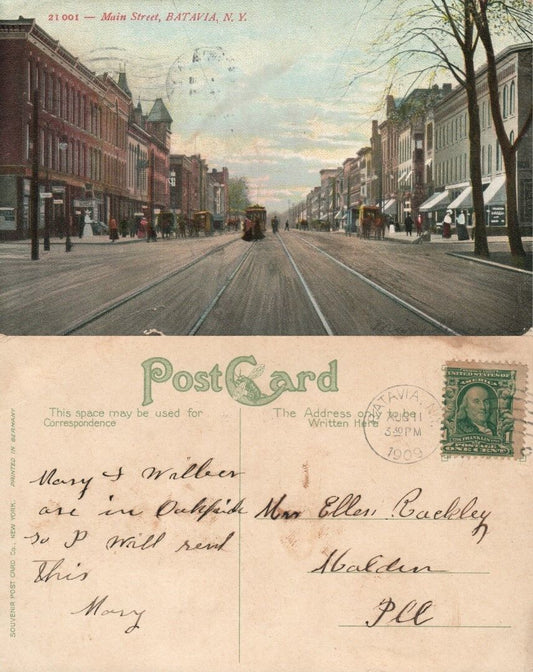 21001 — Main Street, BATAVIA, N. Y.
Post Card
This space may be used for
Correspondence
The Address only to be
Written Here
BATAVIA, N.Y.
AUG 11
3 30 PM
1909
UNITED STATES OF AMERICA
FRANKLIN
ONE CENT
SOUVENIR POST CARD CO., NEW YORK. PRINTED IN GERMANY
Mary & Wilber
are in Oakfield
so I will send
this
Mary
Mrs Ellen Cockley
Malden
Ill